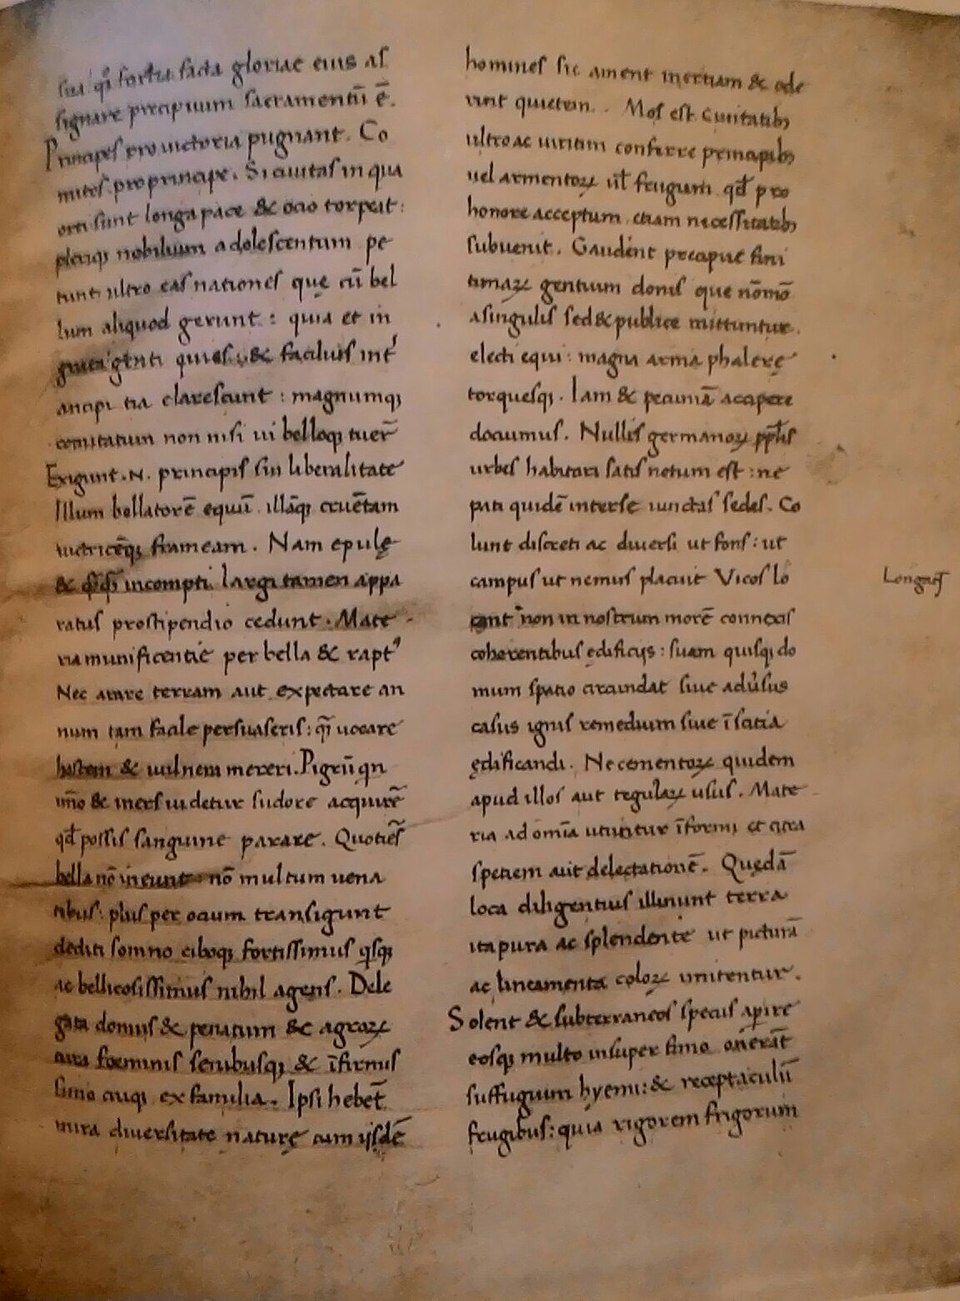 sua qq̣ fortia facta gloriae eius as
signare precipuum sacramentũ ẽ.
Principes pro uictoria pugnant. Co
mites pro principe. Si ciuitas in qua
orti sunt longa pace & ocio torpeat:
pleriqȝ nobilium adolescentum pe
tunt ultro eas nationes quę cũ bel
lum aliquod gerunt: quia et in
grata genti quies: & facilius int̉
ancipitia clarescunt: magnumqȝ
comitatum non nisi ui belloqȝ tuer̃
Exigunt .N. principis sui liberalitate
Illum bellatorẽ equũ. illãqȝ cruẽtam
uictricẽqȝ frameam. Nam epulę
& incompti. largi tamen appa
ratus pro stipendio cedunt. Mate
ria munificentie per bella & rapt᾽
Nec arare terram aut expectare an
num tam facile persuaseris: qq̃ uocare
hostem & uulnera mereri. Pigrũ qn
ĩmo & iners uidetur sudore acquirẽ
qđ possis sanguine parare. Quotiẽs
bella nõ ineunt nõ multum uena
tibus: plus per ocium transigunt
dediti somno ciboqȝ fortissimus qsqȝ
ac bellicosissimus nihil agens. Dele
gata domus & penatium & agroꝝ
cura foeminis senibusqȝ & ĩfirmis
simo cuiqȝ ex familia. Ipsi hebet̃
mira diuersitate naturę cum ijsdẽ
homines sic ament inertiam & ode
rint quietem. Mos est Ciuitatibȝ
ultro ac uiritim conferre principibȝ
uel armentoꝝ uł frugum qđ pro
honore acceptum etiam necessitatibȝ
subuenit. Gaudent precipue fini
timaꝝ gentium donis que nõmõ
a singulis sed & publice mittuntur.
electi equi: magna arma phalerę
torquesqȝ. Iam & pecuniã accipere
docuimus. Nullis germanoꝝ pp̃lis
urbes habitari satis notum est: ne
pati quidẽ inter se iunctas sedes. Co
lunt discreti ac diuersi ut fons: ut
campus ut nemus placuit Vicos lo
cant non in nostrum morẽ connexis
coherentibus ędificijs: suam quisqȝ do
mum spatio circundat siue adũsus
casus ignis remedium siue ĩscitia
ędificandi. Ne cementoꝝ quidem
apud illos aut tegulaꝝ usus. Mate
ria ad omĩa utuntur ĩformi et citra
speciem aut delectationẽ. Quędã
loca diligentius illiniunt terra
ita pura ac splendente ut picturã
ac lineamenta coloꝝ imitentur.
Solent & subterraneos specus aperire
eosqȝ multo insuper fimo onerãt
suffugium hyemi: & receptaculũ
frugibus: quia rigorem frigorum